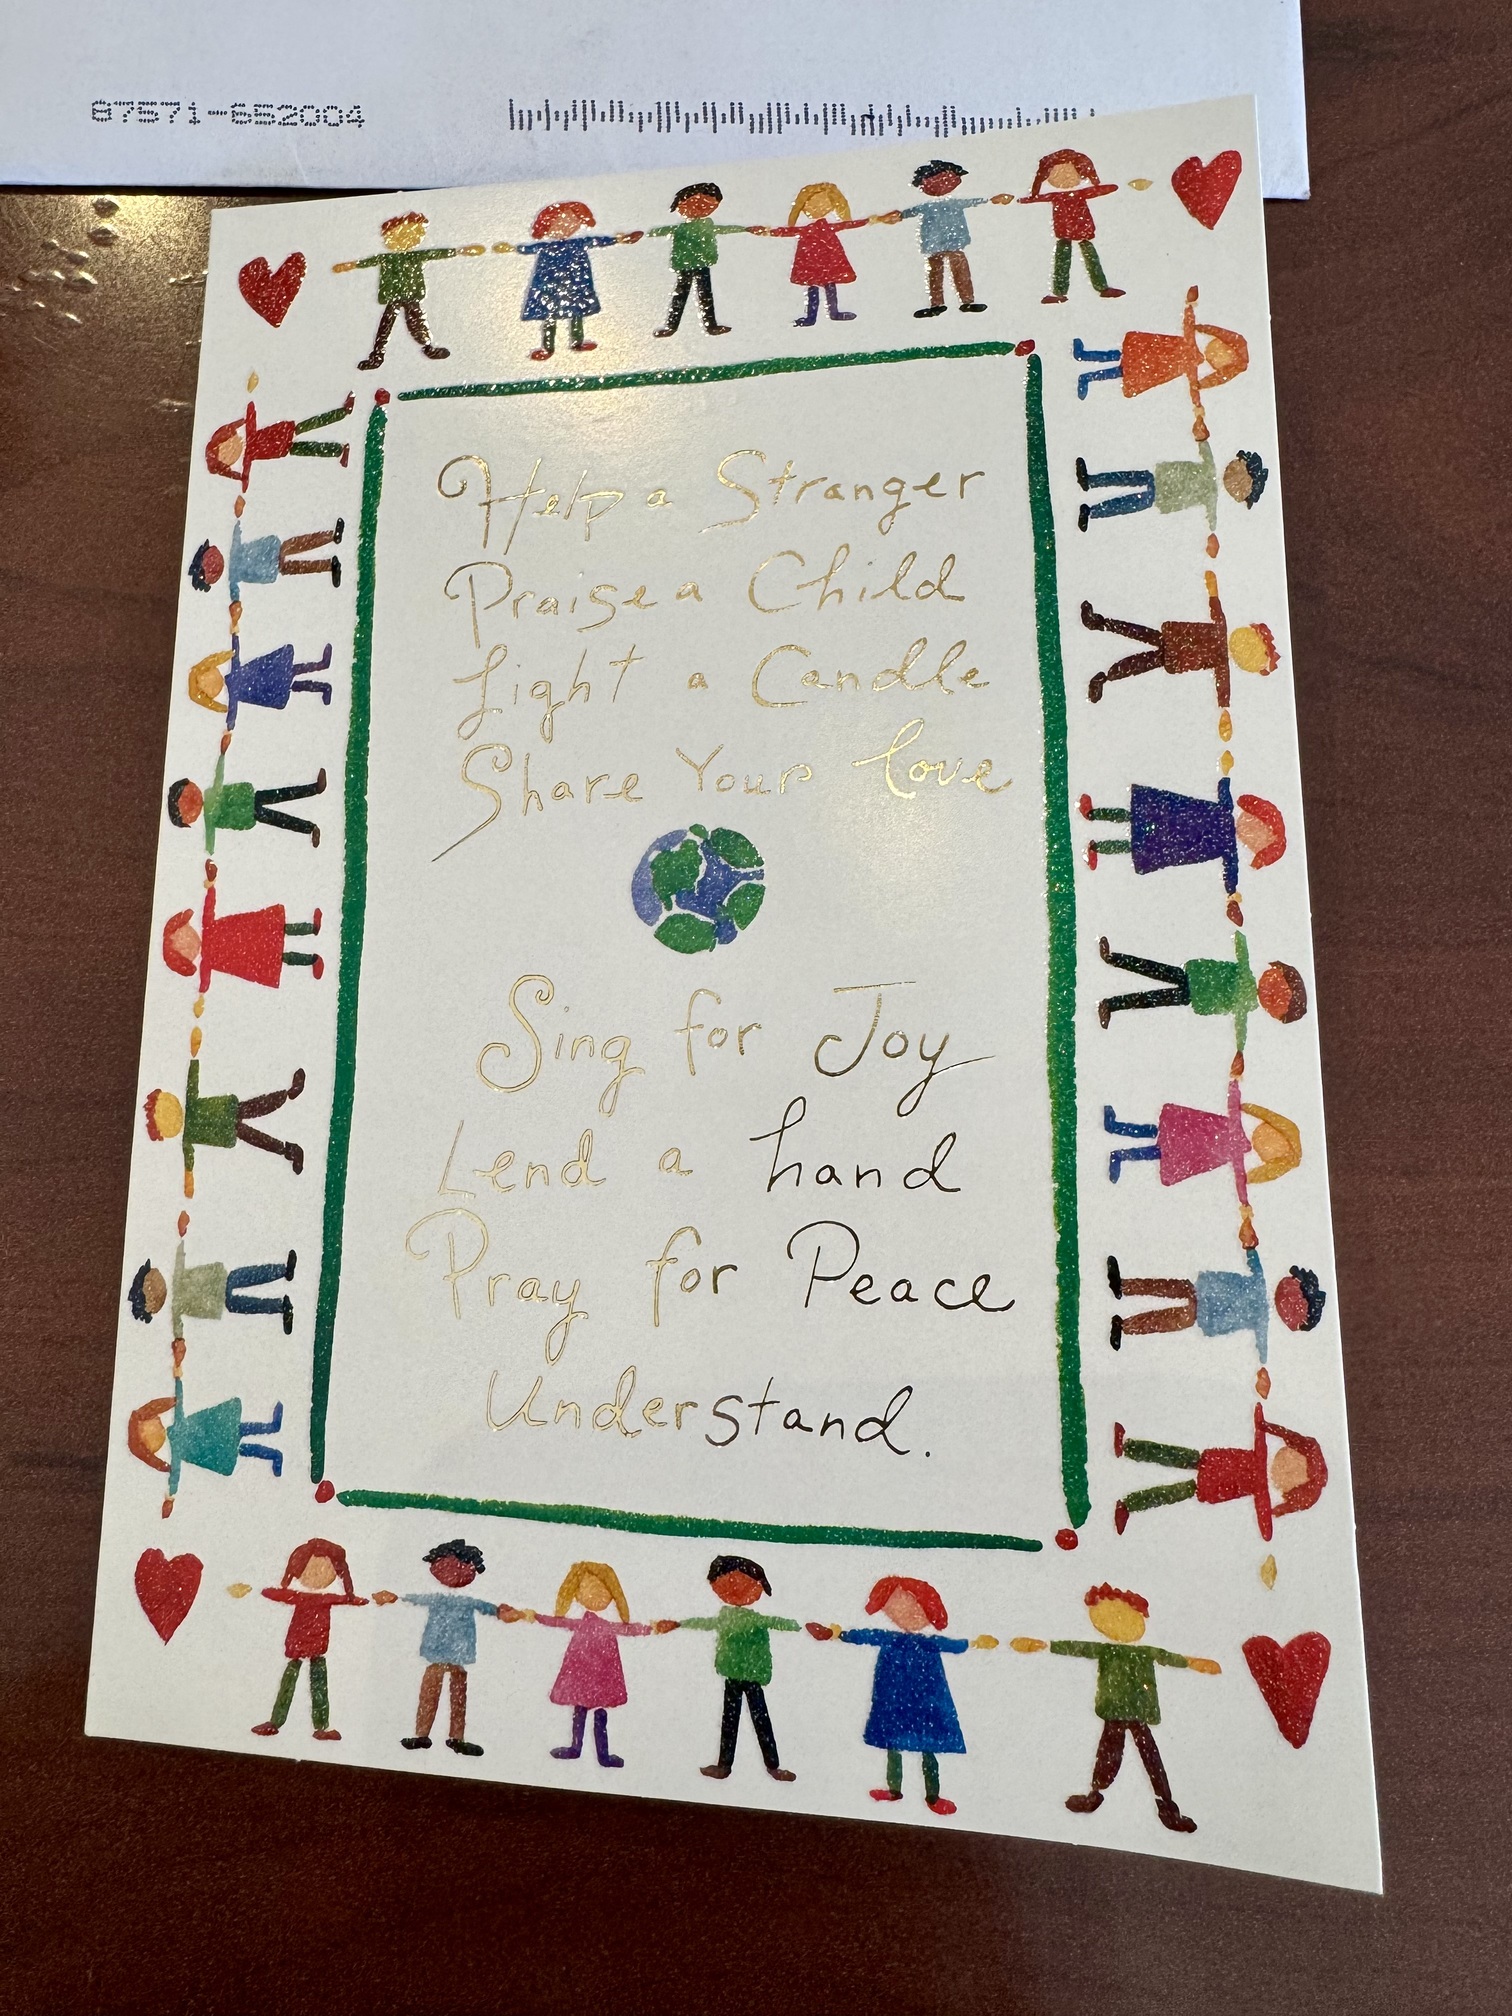 87571-652004
Help a Stranger
Praise a Child
Light a Candle
Share Your Love
Sing for Joy
Lend a hand
Pray for Peace
Understand.